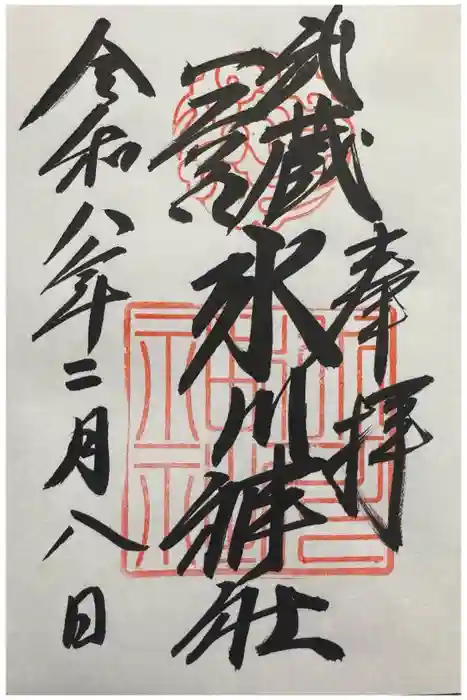 奉拝
武蔵
一宮
氷川神社
令和八年二月八日
氷川神社